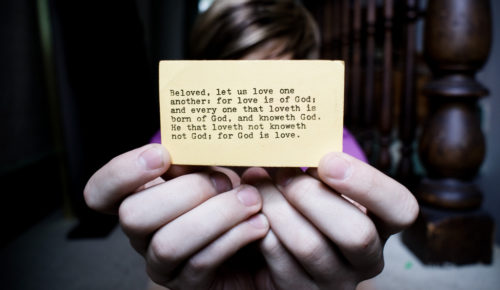 Beloved, let us love one
another: for love is of God;
and every one that loveth is
born of God, and knoweth God.
He that loveth not knoweth
not God; for God is love.